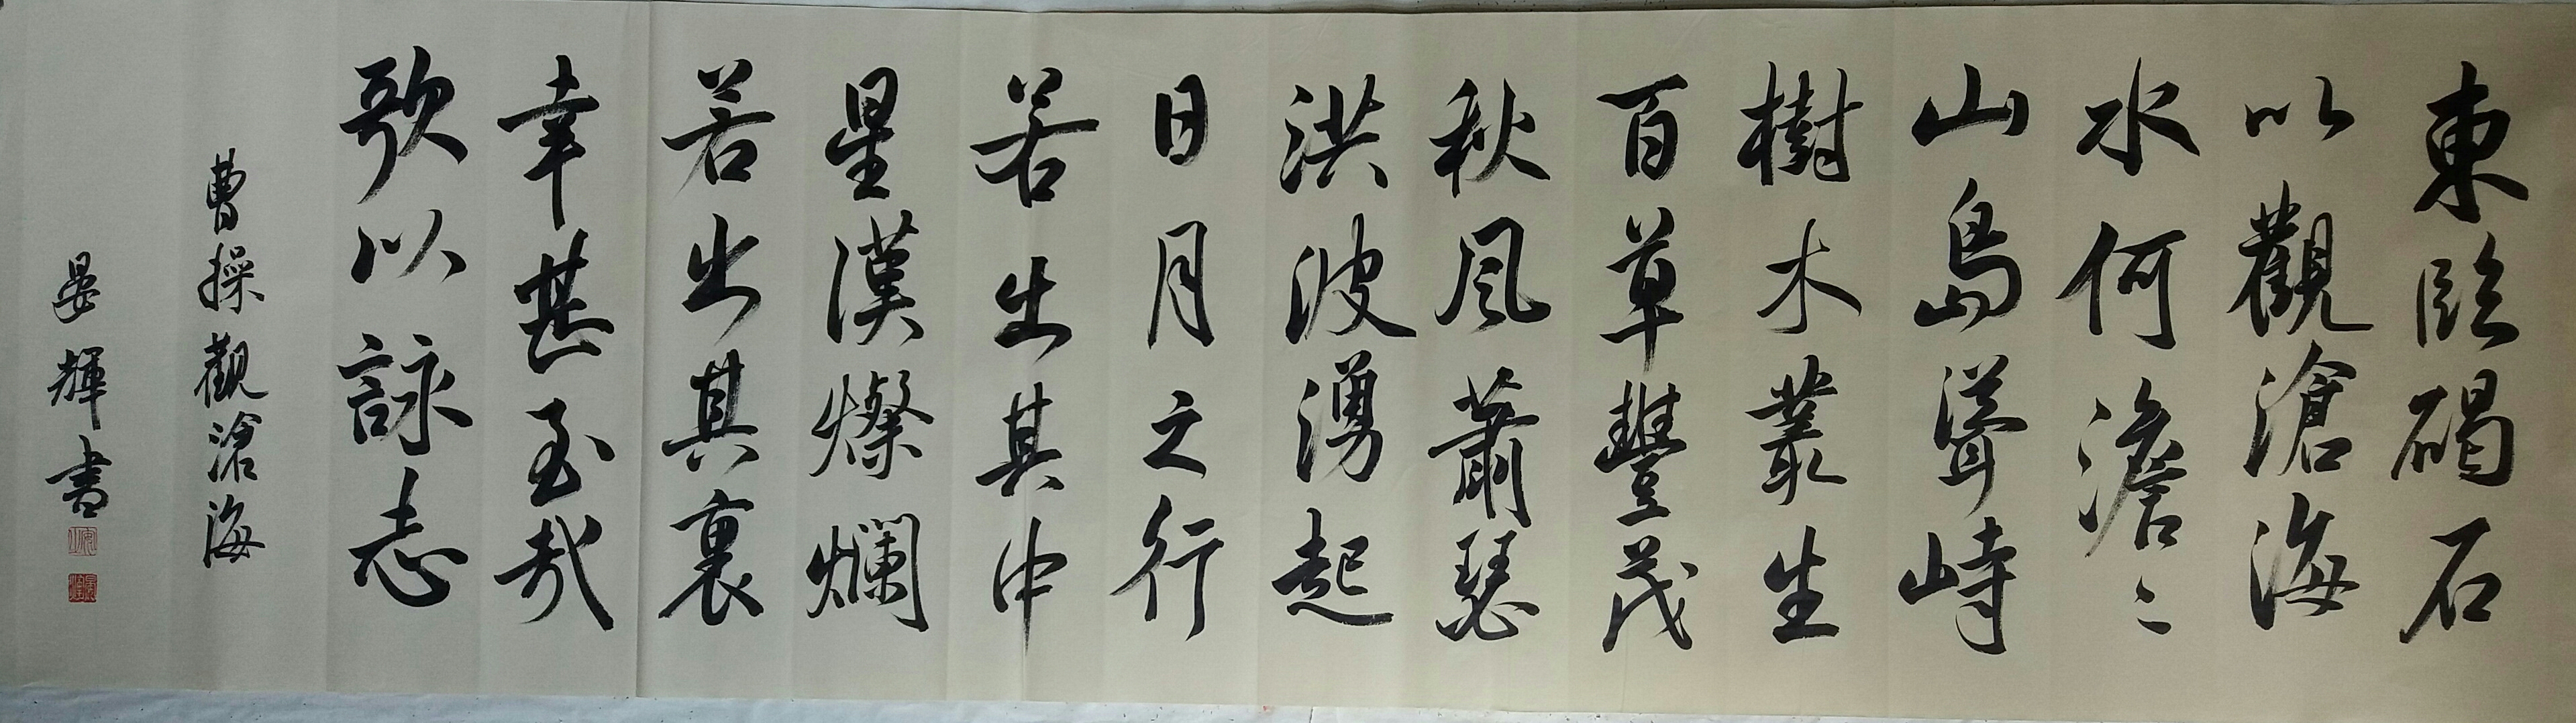 東臨碣石
以觀滄海
水何澹〻
山島聳峙
樹木叢生
百草豐茂
秋風蕭瑟
洪波湧起
日月之行
若出其中
星漢燦爛
若出其裏
幸甚至哉
歌以詠志
曹操觀滄海
晏輝書